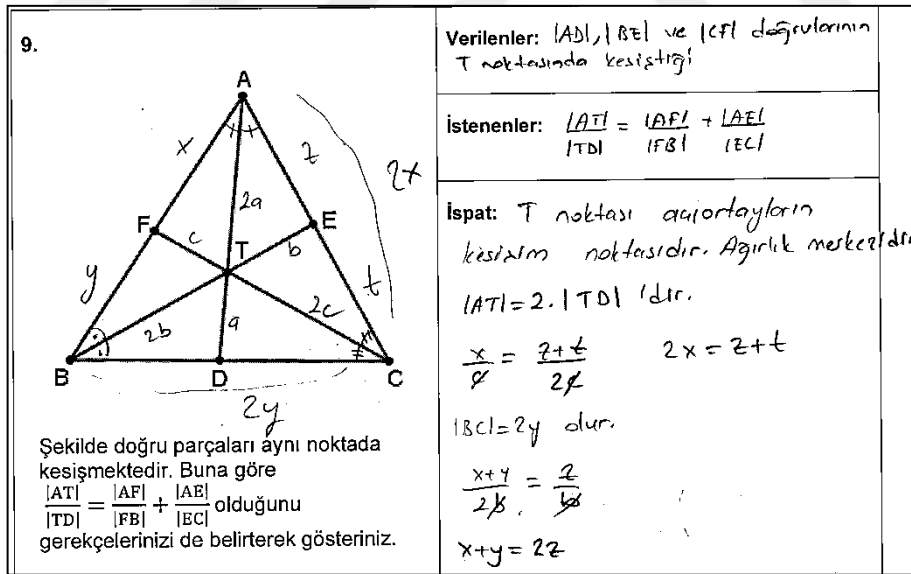 9.
A
x
z
2x
2a
F
E
c
T
b
y
t
2b
a
2c
B
D
C
2y
Şekilde doğru parçaları aynı noktada
kesişmektedir. Buna göre
|AT|/|TD| = |AF|/|FB| + |AE|/|EC| olduğunu
gerekçelerinizi de belirterek gösteriniz.
Verilenler: |AD|, |BE| ve |CF| doğrularının
T noktasında kesiştiği
İstenenler: |AT|/|TD| = |AF|/|FB| + |AE|/|EC|
İspat: T noktası açıortayların
kesişim noktasıdır. Ağırlık merkezidir
|AT| = 2.|TD| 'dır.
x/c = z+t/2c 2x = z+t
|BC| = 2y olur.
x+y/2b = z/b
x+y = 2z